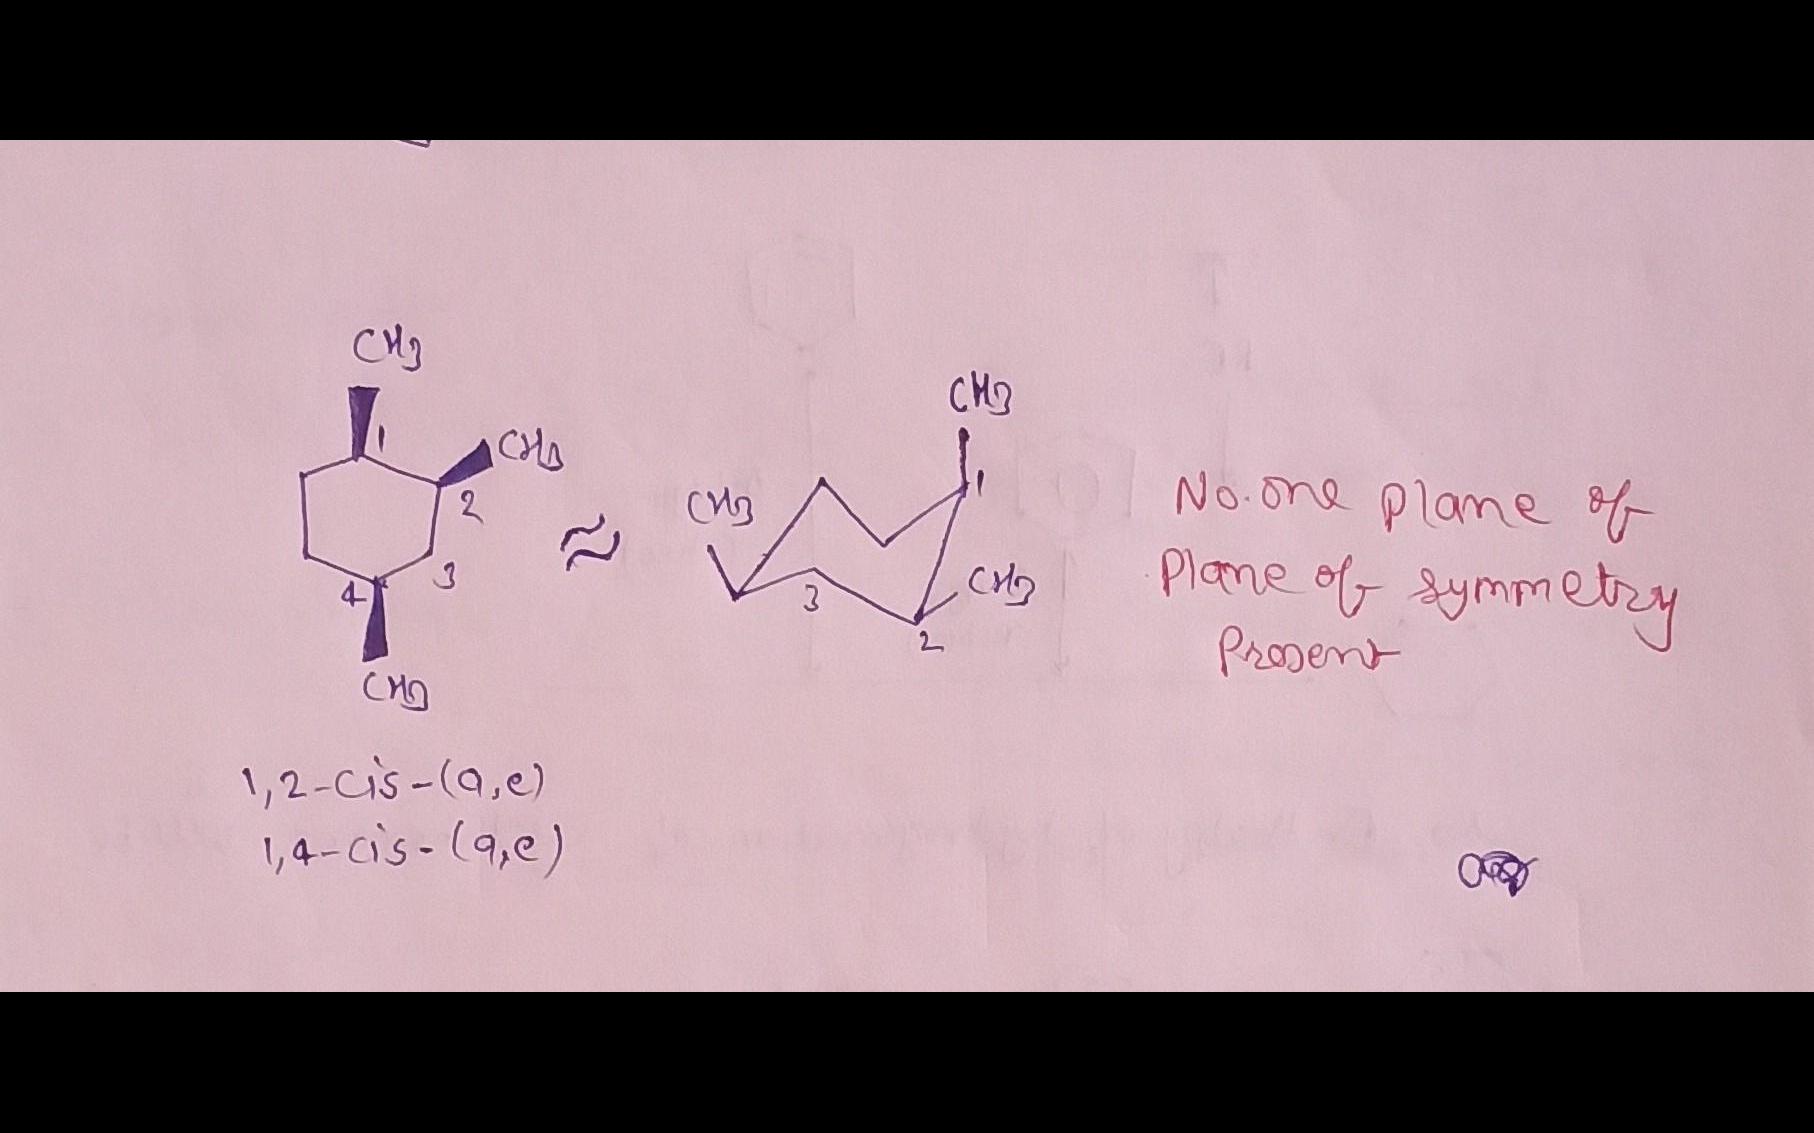 CH3
1
CH3
2
3
4
CH3
≈
CH3
1
CH3
3
CH3
2
No. one plane of
Plane of symmetry
Present
1,2-cis-(a,e)
1,4-cis-(a,e)